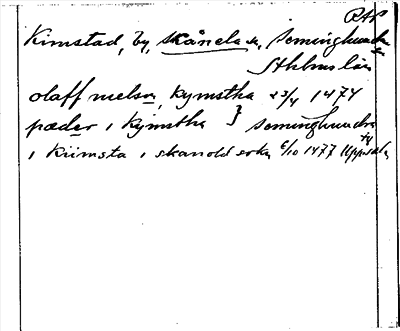 RAP
Kimstad, by, skånela sn, Seminghundra
Sthlms län
olaff nielson, kymstha 23/4 1474
pæder i kymstha } Seminghundra
i kiimsta i skanold sokn 6/10 1477 Uppsala